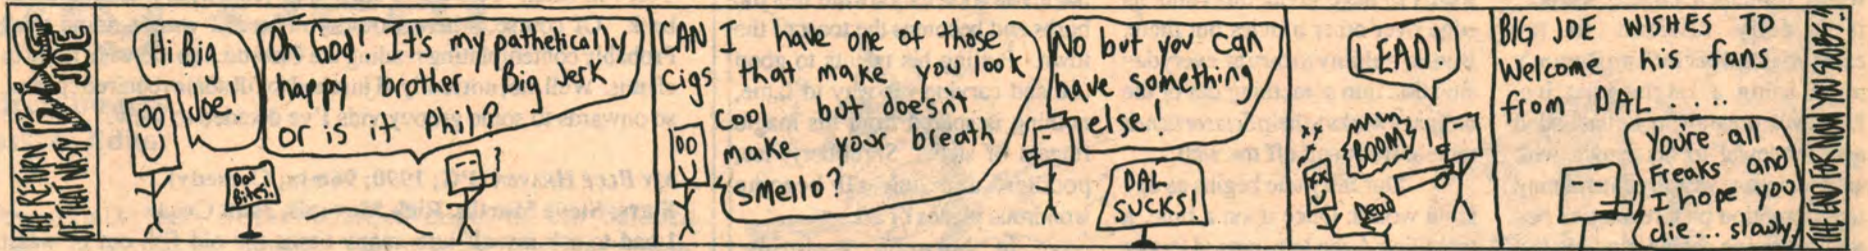 THE RETURN
OF THAT WIMPY
BIG
JOE
Hi Big
Joe!
Oh God! It's my pathetically
happy brother, Big Jerk
or is it Phil?
Dal
Bites!
CAN I have one of those
Cigs that make you look
Cool but doesn't
make your breath
Smello?
No but you can
have something
else!
DAL
SUCKS!
LEAD!
BOOM
Dead
BIG JOE WISHES TO
Welcome his fans
from DAL....
You're all
Freaks and
I hope you
die... slowly.
THE END FOR NOW YOU SUBS!!